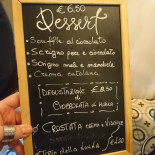 € 6.50
Dessert
• Soufflé al cioccolato
• Scrigno pera e cioccolato
• Scrigno mela e mandorle
• Crema catalana
DEGUSTAZIONE
DI
CIOCCOLATA DI MODICA
CROSTATA
Torta della nonna